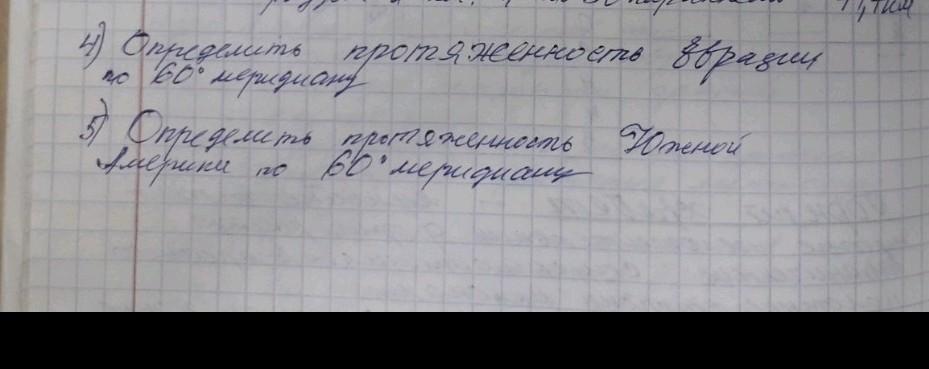 4) Определить протяженность Евразии
по 60° меридиану
5) Определить протяженность Южной
Америки по 60° меридиану